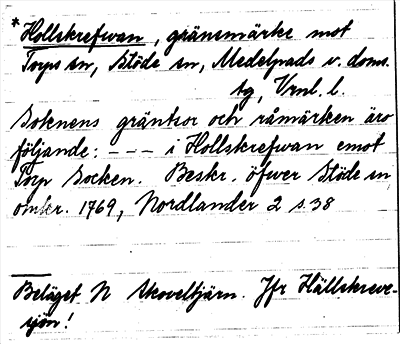 * Hollskrefwan, gränsmärke mot
Torps sn, Stöde sn, Medelpads v. doms.
tg, Vrnl. l.
Soknens gräntsor och råmärken äro
följande: --- i Hollskrefwan emot
Torp Socken. Beskr. öfwer Stöde sn
omkr. 1769, Nordlander 2 s. 38
Beläget N Skoveltjärn. Jfr Hällskreve-
sjön!